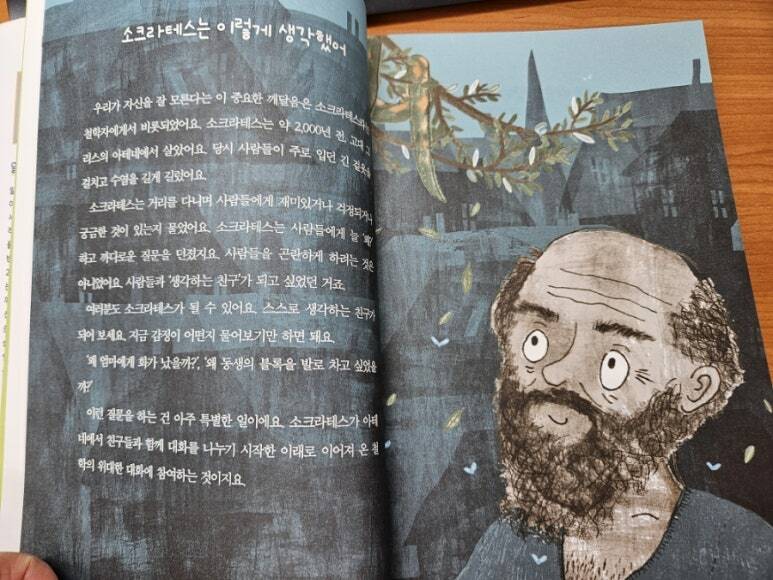 소크라테스는 이렇게 생각했어
우리가 자신을 잘 모른다는 이 중요한 깨달음은 소크라테스라는
철학자에게서 비롯되었어요. 소크라테스는 약 2,000년 전, 고대 그
리스의 아테네에서 살았어요. 당시 사람들이 주로 입던 긴 겉옷을
걸치고 수염을 길게 길렀어요.
소크라테스는 거리를 다니며 사람들에게 재미있거나 걱정되거나
궁금한 것이 있는지 물었어요. 소크라테스는 사람들에게 늘 '왜?'
하고 까다로운 질문을 던졌지요. 사람들을 곤란하게 하려는 것은
아니었어요. 사람들과 '생각하는 친구'가 되고 싶었던 거죠.
여러분도 소크라테스가 될 수 있어요. 스스로 생각하는 친구가
되어 보세요. 지금 감정이 어떤지 물어보기만 하면 돼요.
'왜 엄마에게 화가 났을까?', '왜 동생의 블록을 발로 차고 싶었을
까?'
이런 질문을 하는 건 아주 특별한 일이에요. 소크라테스가 아테
네에서 친구들과 함께 대화를 나누기 시작한 이래로 이어져 온 철
학의 위대한 대화에 참여하는 것이지요.